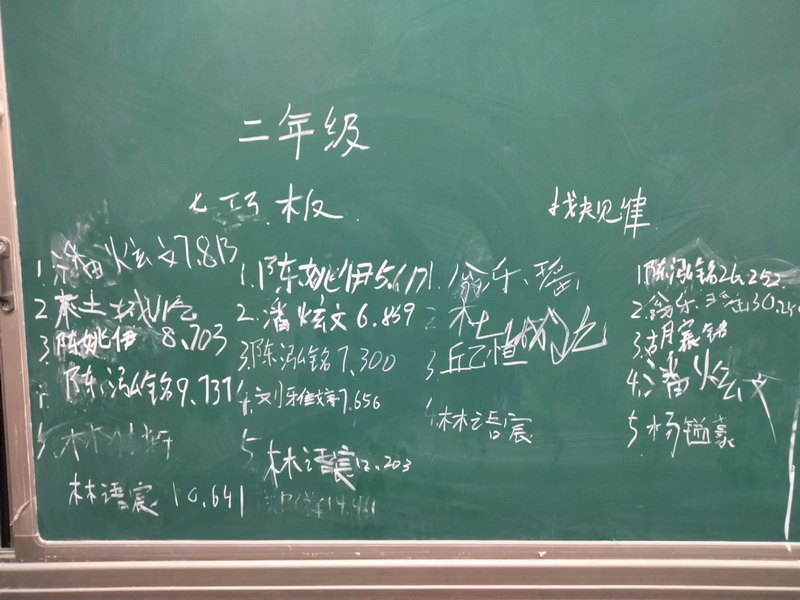 二年级
七巧板
找规律
1.潘炫文7.813
2
3.陈姚伊 8.703
陈泓铭9.737
5
林语宸 10.641
1.陈姚伊5.617
2.潘炫文6.859
3.陈泓铭7.300
4.刘雅婷7.656
5 林语宸12.203
1.翁乐瑶
2 杜
3.丘乙恒
4.林语宸
1.陈泓铭26.252
2.翁乐瑶30.25
3.胡宸铭
4.潘炫文
5.杨镒豪